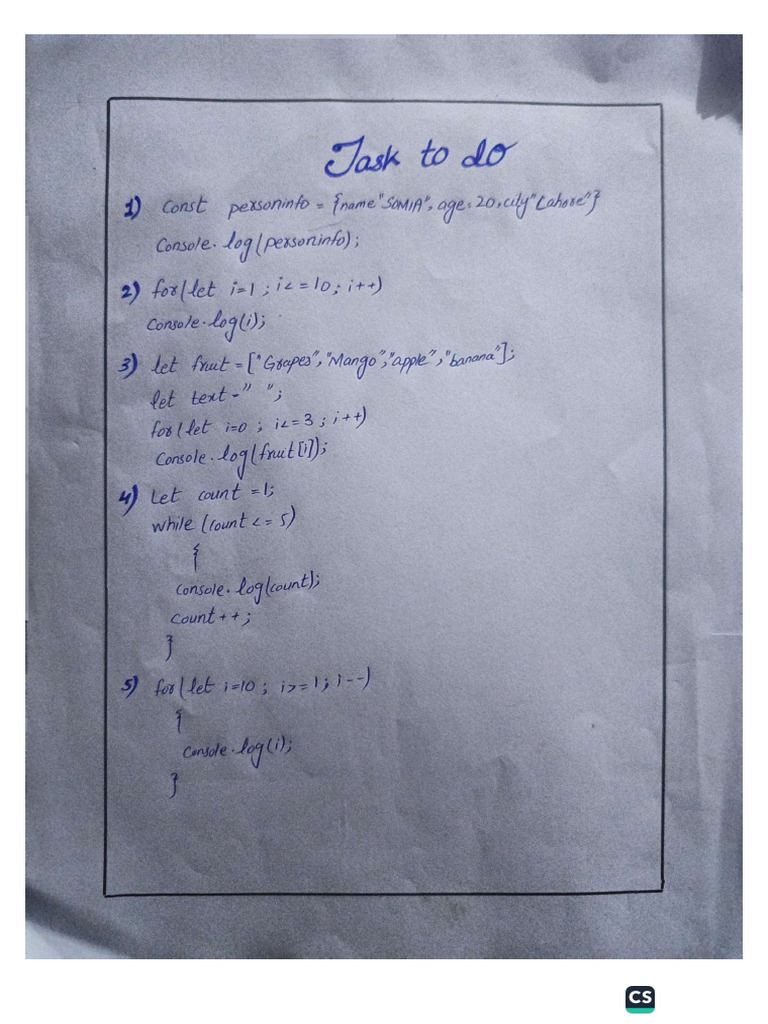 Task to do
1) Const personinfo = {name "SOMIA", age: 20, city "Lahore"}
Console.log(personinfo);
2) for(let i=1 ; i<=10; i++)
Console.log(i);
3) let fruit = ["Grapes", "Mango", "apple", "banana"];
let text = " ";
for(let i=0 ; i<=3 ; i++)
Console.log(fruit[i]);
4) Let count =1;
while (count <= 5)
{
console.log(count);
count++;
}
5) for(let i=10 ; i>=1; i--)
{
console.log(i);
}
CS